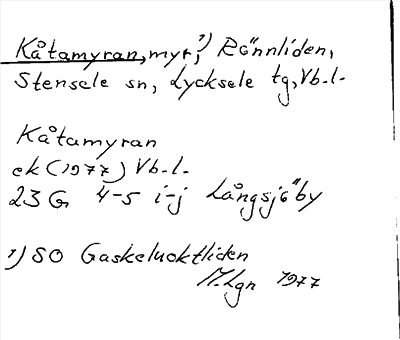 Kåtamyran, myr,¹) Rönnliden,
Stensele sn, Lycksele tg, Vb.l.
Kåtamyran
ek (1977) Vb.l.
23 G 4-5 i-j Långsjöby
¹) SO Gaskeluoktliden
M.Lgn 1977